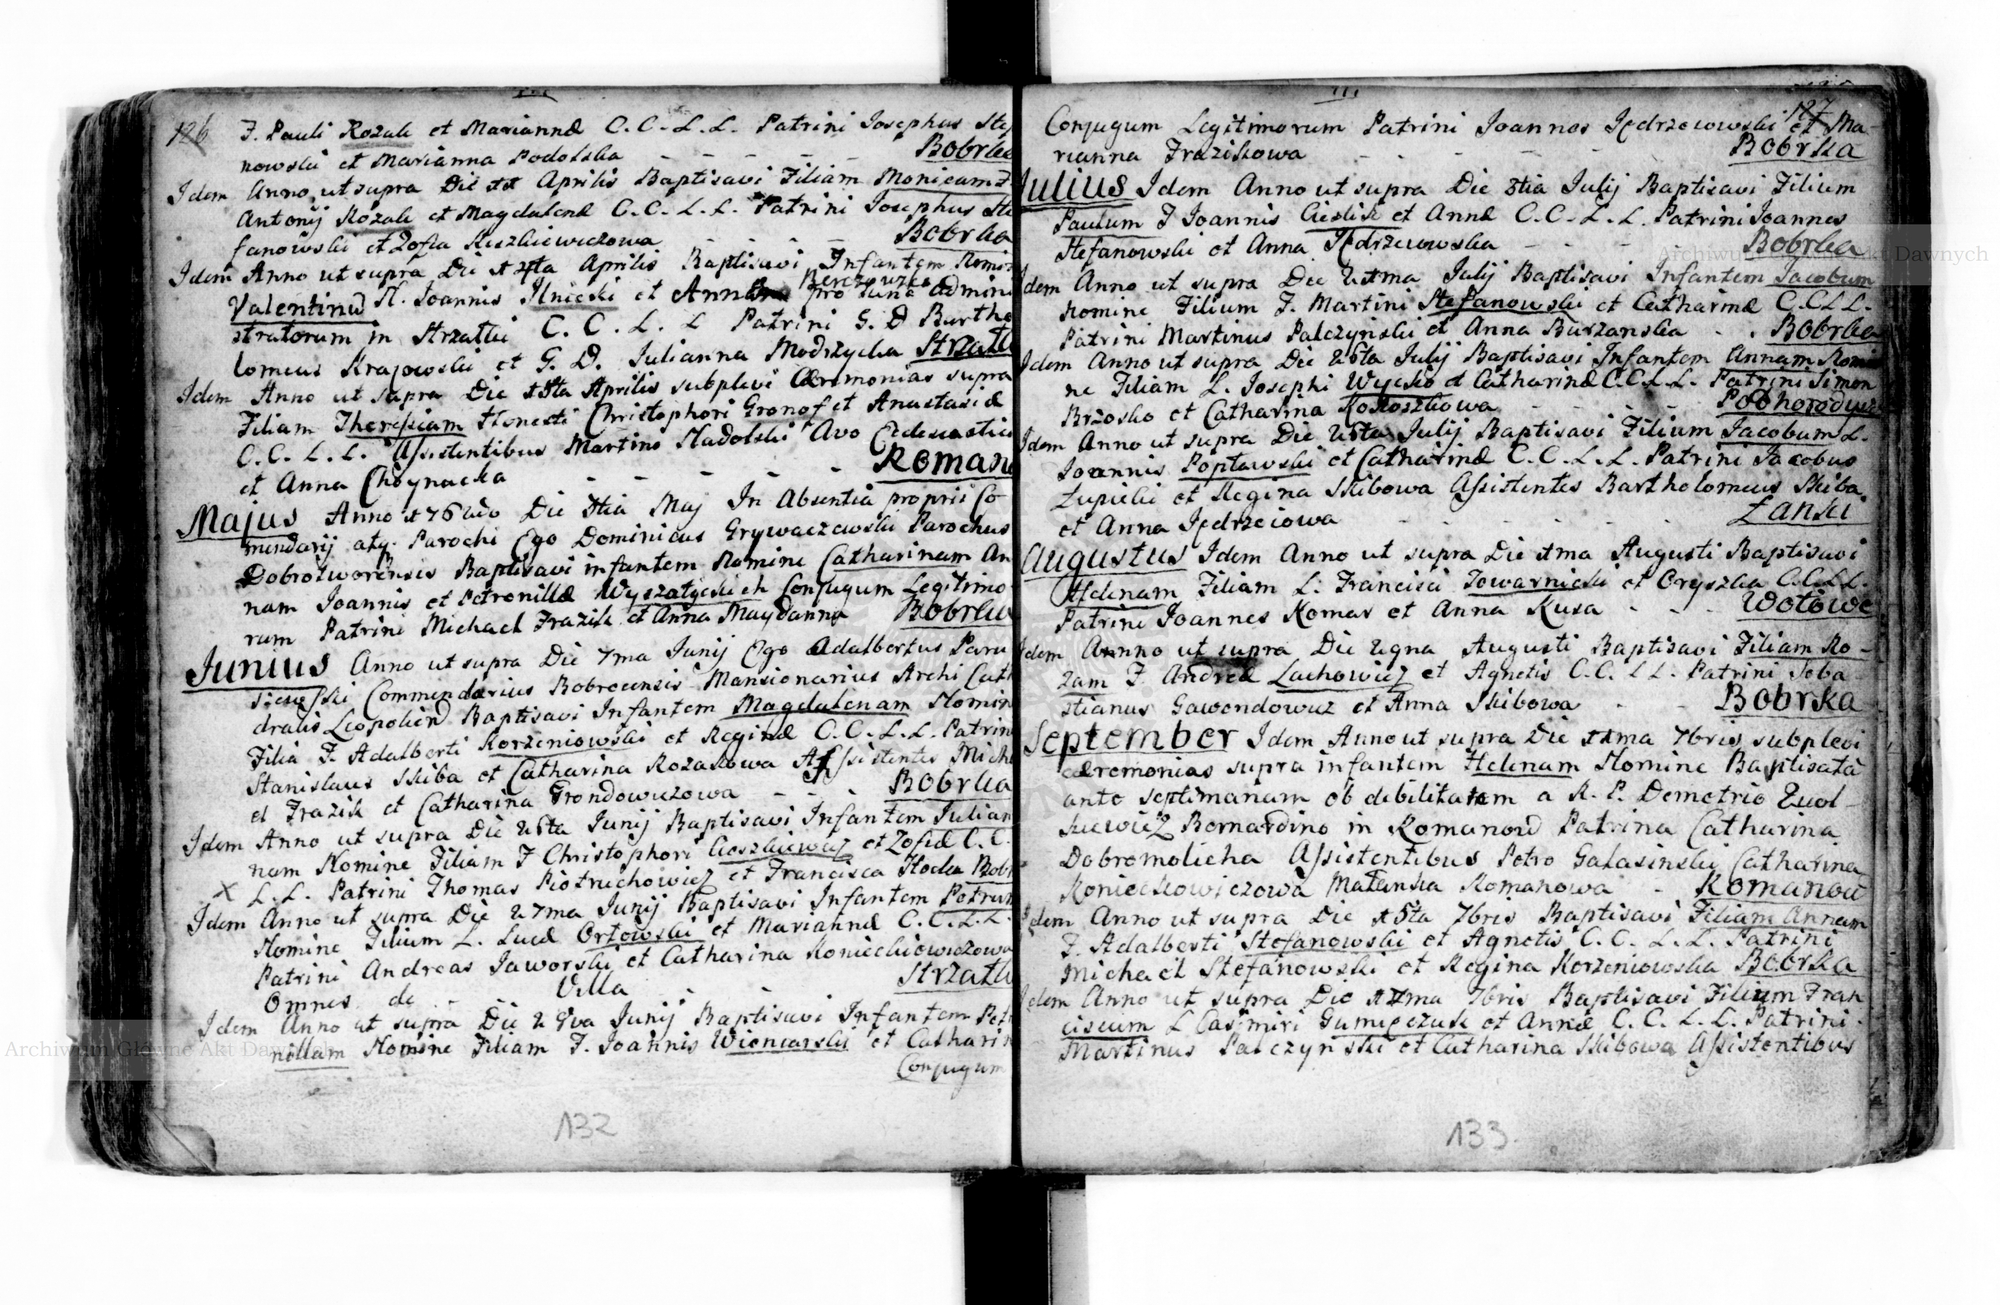 126
F. Pauli Kozak et Mariannæ C.C.L.L. Patrini Josephus Ste
nowski et Marianna Podolska Bobrka
Idem Anno ut supra Die 11 Aprilis Baptisavi Filiam Monicam F.
Antonij Kozak et Magdalenæ C.C.L.L. Patrini Josephus Ste
fanowski et Zofia Bobrka
Idem Anno ut supra Die 14ta Aprilis Baptisavi Infantem Nomin
Valentinū N. Joannis Ilnicki et pro tunc Admini
stratorum in Strzałki C.C.L.L Patrini G. D Bartho
lomeus Krajowski et G. D. Julianna Modrzycka Strzałk
Idem Anno ut supra Die 18ta Aprilis subplevi Cæremonias supra
Filiam Theresiam Honesti Christophori Gronof et Anastasiæ
C.C.L.L. Assistentibus Martino Nadolski Avo Ecclesiastico
et Anna Choynacka Roman
Majus Anno 1762do Die 3tia Maj In Absentia proprii Co
mendarij atq. Parochi Ego Dominicus Grywaczewski Parochus
Dobrotworensis Baptisavi infantem Nomine Catharinam An
nam Joannis et Petronillæ Wyszatyckich Conjugum Legitimo
rum Patrini Michael Frazik et Anna Maydanna Bobrka
Junius Anno ut supra Die 7ma Junij Ego Adalbertus Paru
siewski Commendarius Bobrcensis Mansionarius Archi Cat
dralis Leopolien Baptisavi Infantem Magdalenam Nomin
Filia F. Adalberti Korzeniowski et Reginæ C.C.L.L. Patrin
Stanislaus Skiba et Catharina Kozakowa Assistentes Mich
el Frazik et Catharina Grondowiczowa Bobrka
Idem Anno ut supra Die 26ta Junij Baptisavi Infantem Julian
nam Nomine Filiam F Christophori Cieszkiewicz et Zofiæ C.C.
X L.L. Patrini Thomas Piotruchowicz et Francisca Bobr
Idem Anno ut supra Die 27ma Junij Baptisavi Infantem Petrum
Nomine Filium L. Lucæ Ortowski et Mariannæ C.C.L.L.
Patrini Andreas Jaworski et Catharina Konieckiewiczowa
Omnes de Villa Strzałk
Idem Anno ut supra Die 29va Junij Baptisavi Infantem Petr
nillam Nomine Filiam F. Joannis Wieniarski et Catharin
Conjugum
132
127
Conjugum Legitimorum Patrini Joannes Jędrzeiowski et Ma-
rianna Frazikowa Bobrka
Julius Idem Anno ut supra Die 3tia Julij Baptisavi Filium
Paulum F Joannis Cieślik et Annæ C.C.L.L. Patrini Joannes
Stefanowski et Anna Jędrzeiowska Bobrka
Idem Anno ut supra Die 21ma Julij Baptisavi Infantem Jacobum
Nomine Filium F. Martini Stefanowski et Catharinæ C.C.L.L.
Patrini Martinus Palczynski et Anna Burzanska Bobrka
Idem Anno ut supra Die 26ta Julij Baptisavi Infantem Annam Nomi
ne Filiam L. Josephi Wycko et Catharinæ C.C.L.L. Patrini Simon
Brzosko et Catharina Kokoszkowa Podhorodysz
Idem Anno ut supra Die 26ta Julij Baptisavi Filium Jacobum L.
Joannis Popławski et Catharinæ C.C.L.L. Patrini Jacobus
Łupicki et Regina Skibowa Assistentes Bartholomeus Skiba
et Anna Jędrzeiowa Łanki
Augustus Idem Anno ut supra Die 1ma Augusti Baptisavi
Helenam Filiam L. Francisci Towarnicki et Oryszka C.C.L.L.
Patrini Joannes Komar et Anna Kusa Wołowe
Idem Annno ut supra Die 29na Augusti Baptisavi Filiam Ro-
zam F. Andreæ Lachowicz et Agnetis C.C.L.L. Patrini Seba-
stianus Gawendowicz et Anna Skibowa Bobrka
September Idem Anno ut supra Die 11ma 7bris subplevi
cæremonias supra infantem Helenam Nomine Baptisatā
ante septimanam ob debilitatem a R. P. Demetrio Zwol-
kiewicz Bernardino in Romanow Patrina Catharina
Dobromolicha Assistentibus Petro Galasinski Catharina
Konieckowiczowa Małanka Romanowa Romanow
Idem Anno ut supra Die 15ta 7bris Baptisavi Filiam Annam
F. Adalberti Stefanowski et Agnetis C.C.L.L. Patrini
Michael Stefanowski et Regina Korzeniowska Bobrka
Idem Anno ut supra Die 17ma 7bris Baptisavi Filium Fran
ciscum L Casimiri Gumięczuk et Annæ C.C.L.L. Patrini
Martinus Palczynski et Catharina Skibowa Assistentibus
133
Archiwum Główne Akt Dawnych
Archiwum Główne Akt Dawnych